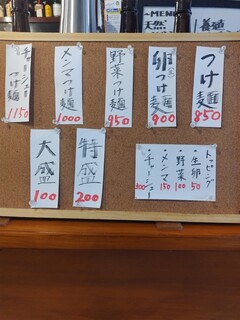 MENU
つけ麺
850
卵つけ麺
900
野菜つけ麺
950
メンマつけ麺
1000
チャーシューつけ麺
1150
特盛
200
大盛
100
トッピング
・生卵 50
・野菜 100
・メンマ 150
・チャーシュー 300